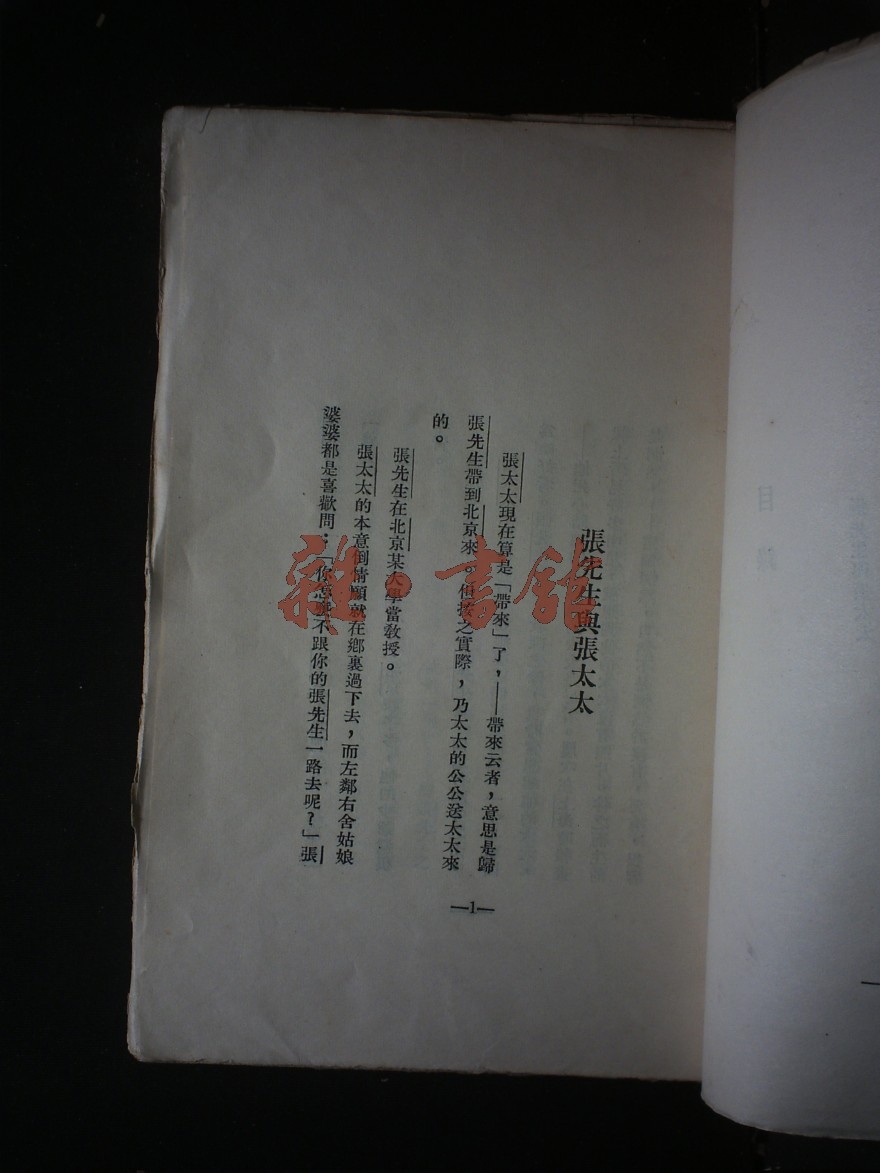 張先生與張太太
張太太現在算是「帶來」了，——帶來云者，意思是歸
張先生帶到北京來。但按之實際，乃太太的公公送太太來
的。
張先生在北京某大學當教授。
張太太的本意倒情願就在鄉裏過下去，而左鄰右舍姑娘
婆婆都是喜歡問：「你怎麼不跟你的張先生一路去呢？」張
—1—
雜·書館
目